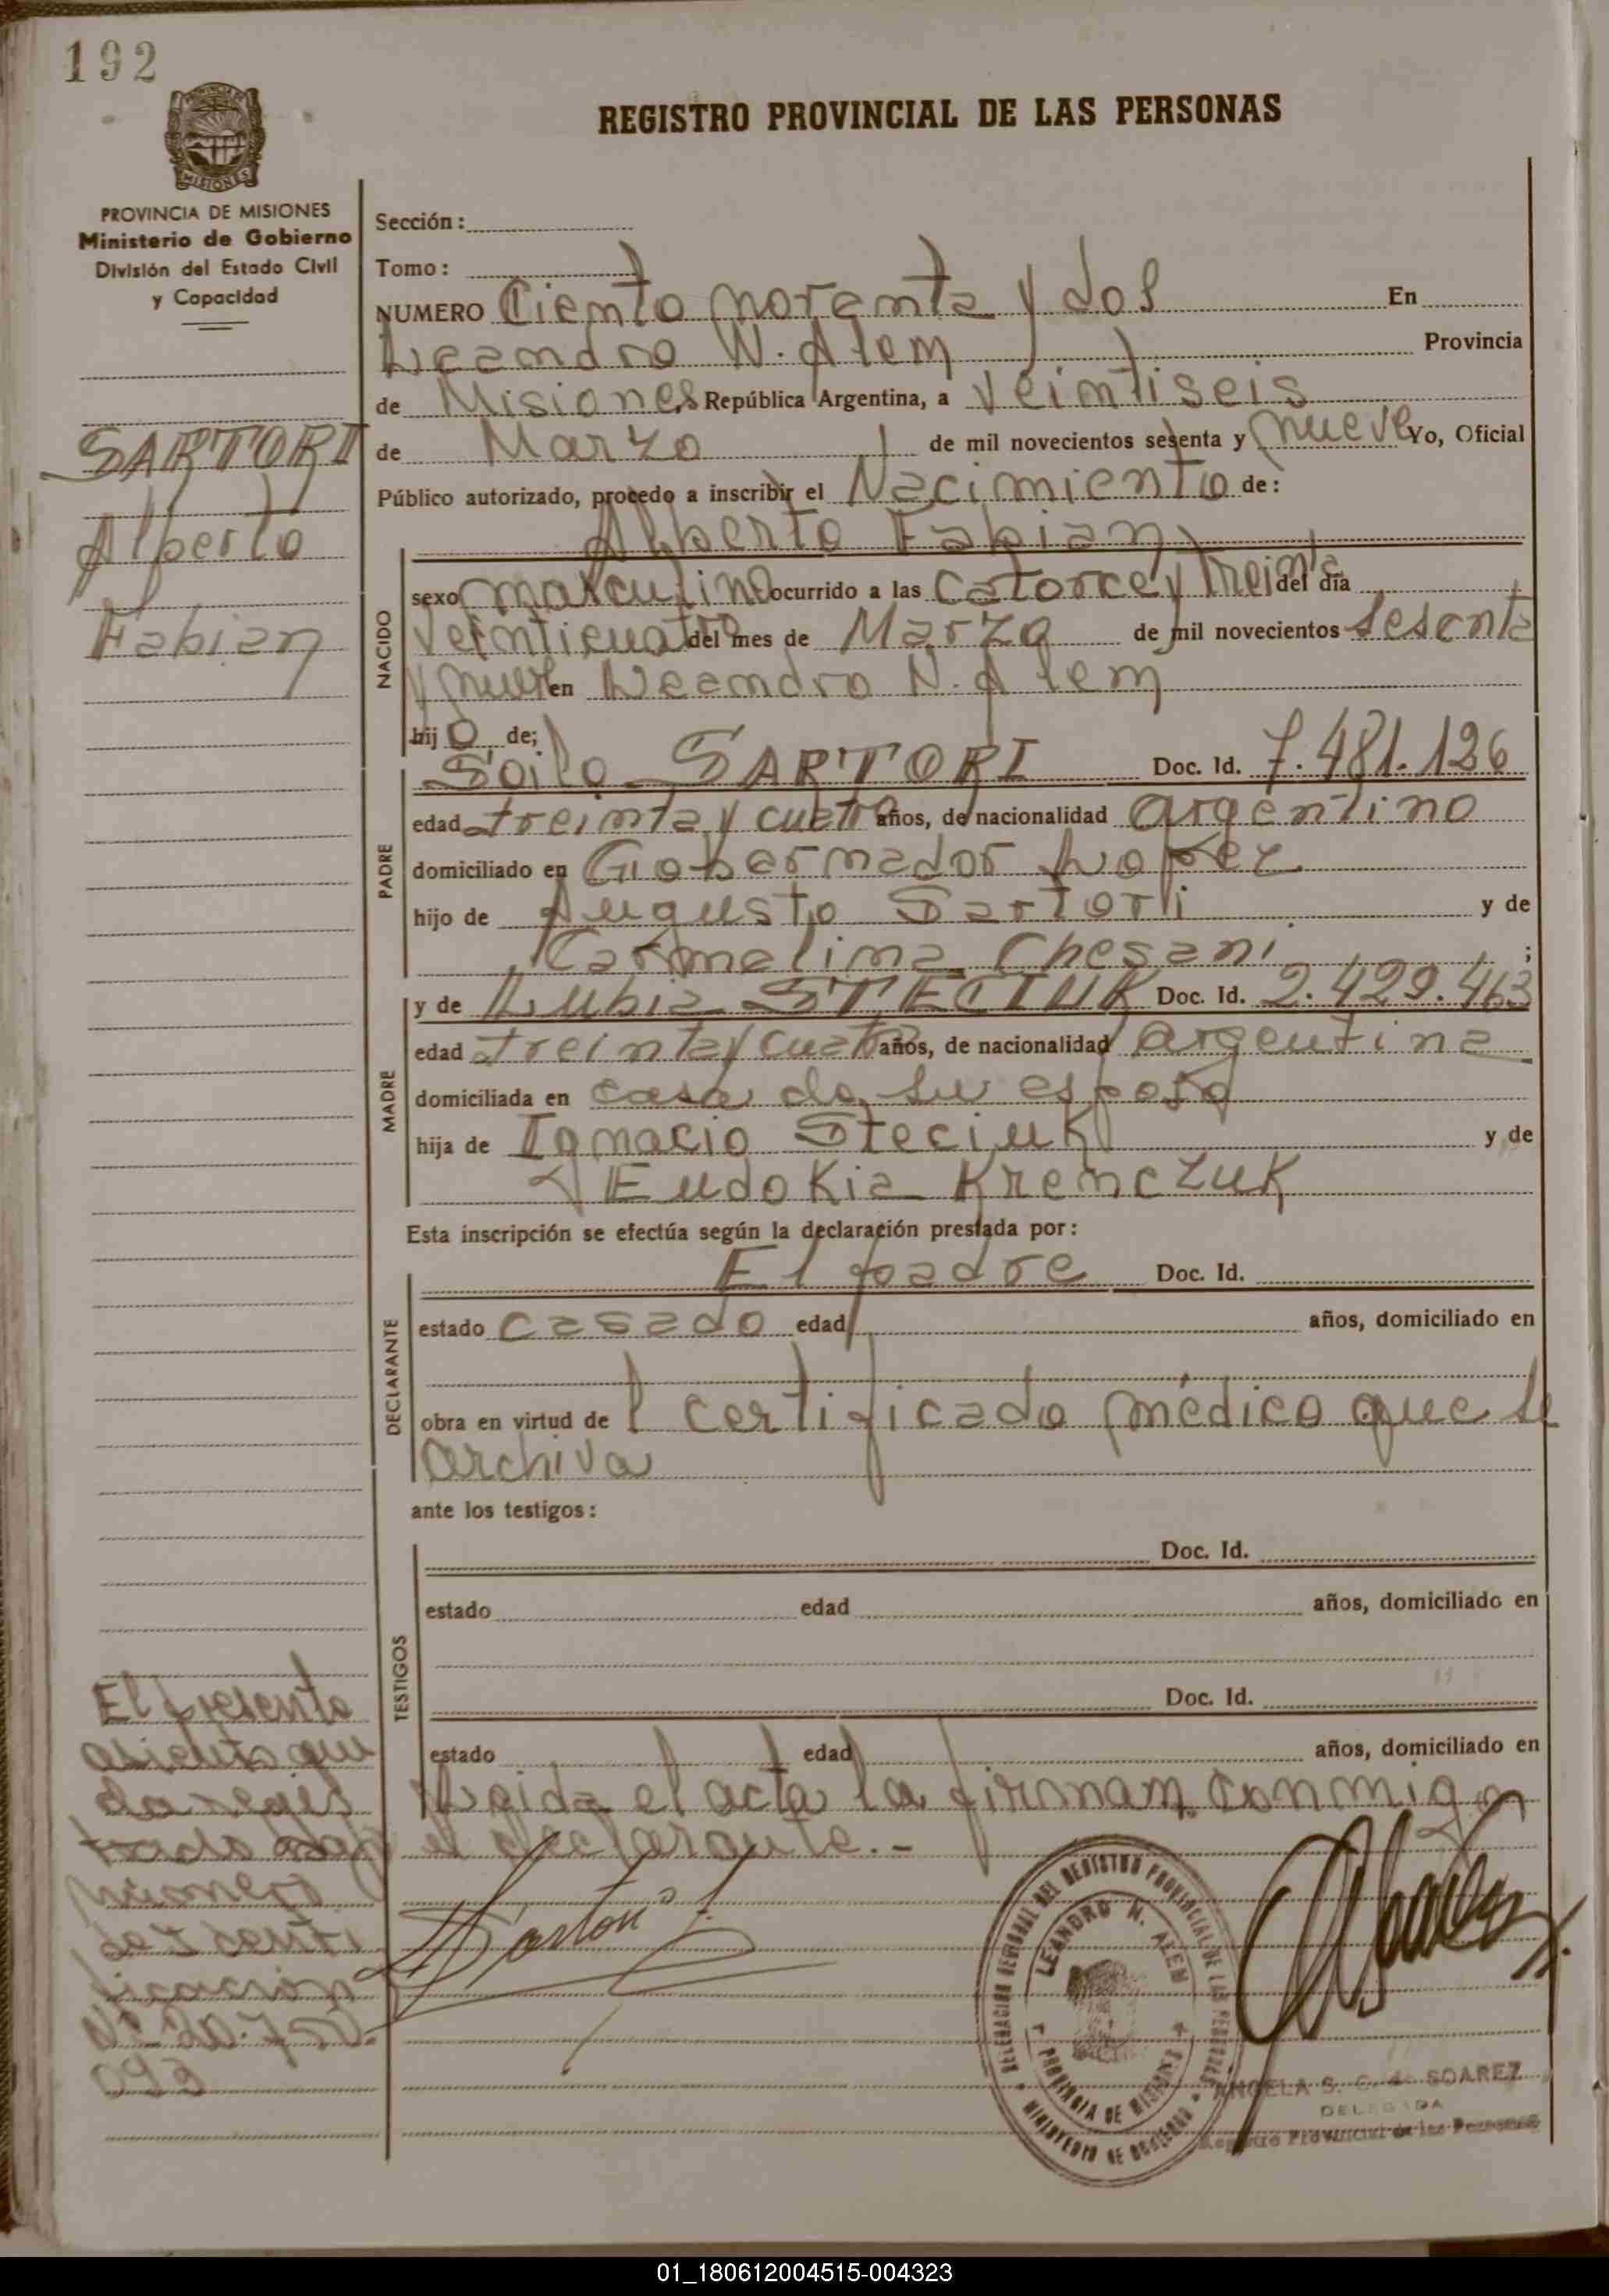 192
REGISTRO PROVINCIAL DE LAS PERSONAS
MISIONES
PROVINCIA DE MISIONES
Ministerio de Gobierno
División del Estado Civil
y Capacidad
SARTORI
Alberto
Fabian
Sección:
Tomo:
NUMERO Ciento noventa y dos En
Leandro N. Alem Provincia
de Misiones República Argentina, a veintiseis
de Marzo de mil novecientos sesenta y nueve Yo, Oficial
Público autorizado, procedo a inscribir el Nacimiento de:
Alberto Fabian
NACIDO
sexo masculino ocurrido a las catorce y treinta del día
veinticuatro del mes de Marzo de mil novecientos sesenta
y nueve en Leandro N. Alem
hijo de;
PADRE
Soilo SARTORI Doc. Id. 7.481.126
edad treinta y cuatro años, de nacionalidad argentino
domiciliado en Gobernador Lopez
hijo de Augusto Sartori y de
Carmelina Chesani ;
MADRE
y de Lubia STECIUK Doc. Id. 2.429.463
edad treinta y cuatro años, de nacionalidad argentina
domiciliada en casa de su esposo
hija de Ignacio Steciuk y de
Eudokia Kremczuk
Esta inscripción se efectúa según la declaración prestada por:
DECLARANTE
El padre Doc. Id.
estado casado edad años, domiciliado en
obra en virtud de l certificado médico que se
archiva
ante los testigos:
TESTIGOS
Doc. Id.
estado edad años, domiciliado en
Doc. Id.
estado edad años, domiciliado en
Leida el acta la firman conmigo
el declarante.-
El presente
asiento que
da regis
trado bajo
número
de identi
ficación
Nº 20.750.
093
Sartori
DELEGACION SECCIONAL DEL REGISTRO PROVINCIAL DE LAS PERSONAS
LEANDRO N. ALEM
PROVINCIA DE MISIONES
MINISTERIO DE GOBIERNO
ANGELA S. C. de SOAREZ
DELEGADA
Registro Provincial de las Personas
01_180612004515-004323